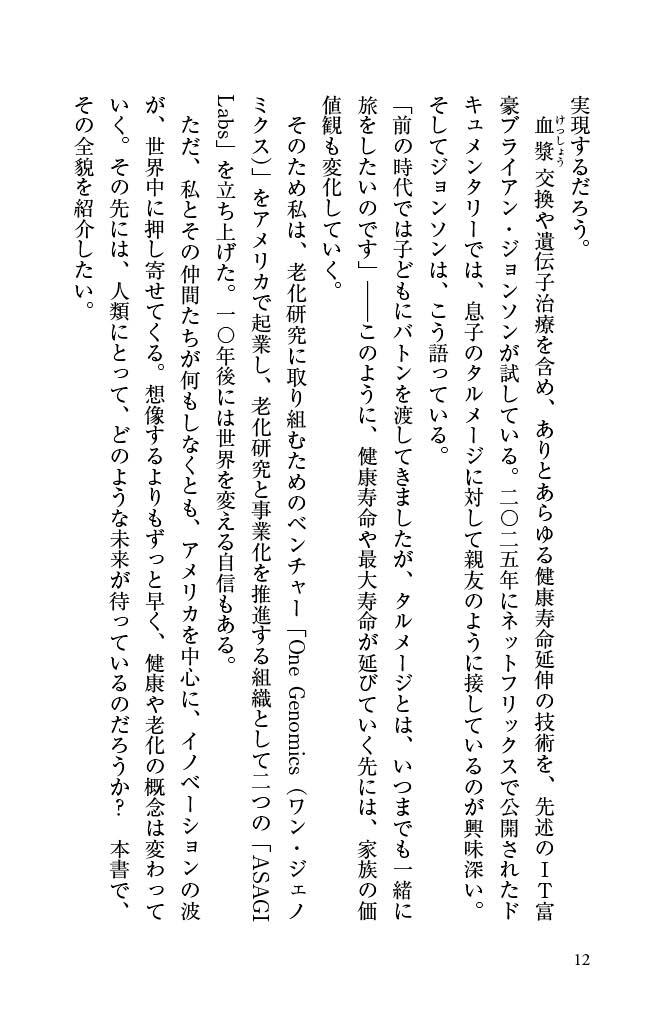 実現するだろう。
血漿交換や遺伝子治療を含め、ありとあらゆる健康寿命延伸の技術を、先述のIT富
けっしょう
豪ブライアン・ジョンソンが試している。二〇二五年にネットフリックスで公開されたド
キュメンタリーでは、息子のタルメージに対して親友のように接しているのが興味深い。
そしてジョンソンは、こう語っている。
「前の時代では子どもにバトンを渡してきましたが、タルメージとは、いつまでも一緒に
旅をしたいのです」――このように、健康寿命や最大寿命が延びていく先には、家族の価
値観も変化していく。
そのため私は、老化研究に取り組むためのベンチャー「One Genomics（ワン・ジェノ
ミクス）」をアメリカで起業し、老化研究と事業化を推進する組織として二つの「ASAGI
Labs」を立ち上げた。一〇年後には世界を変える自信もある。
ただ、私とその仲間たちが何もしなくとも、アメリカを中心に、イノベーションの波
が、世界中に押し寄せてくる。想像するよりもずっと早く、健康や老化の概念は変わって
いく。その先には、人類にとって、どのような未来が待っているのだろうか？　本書で、
その全貌を紹介したい。
12